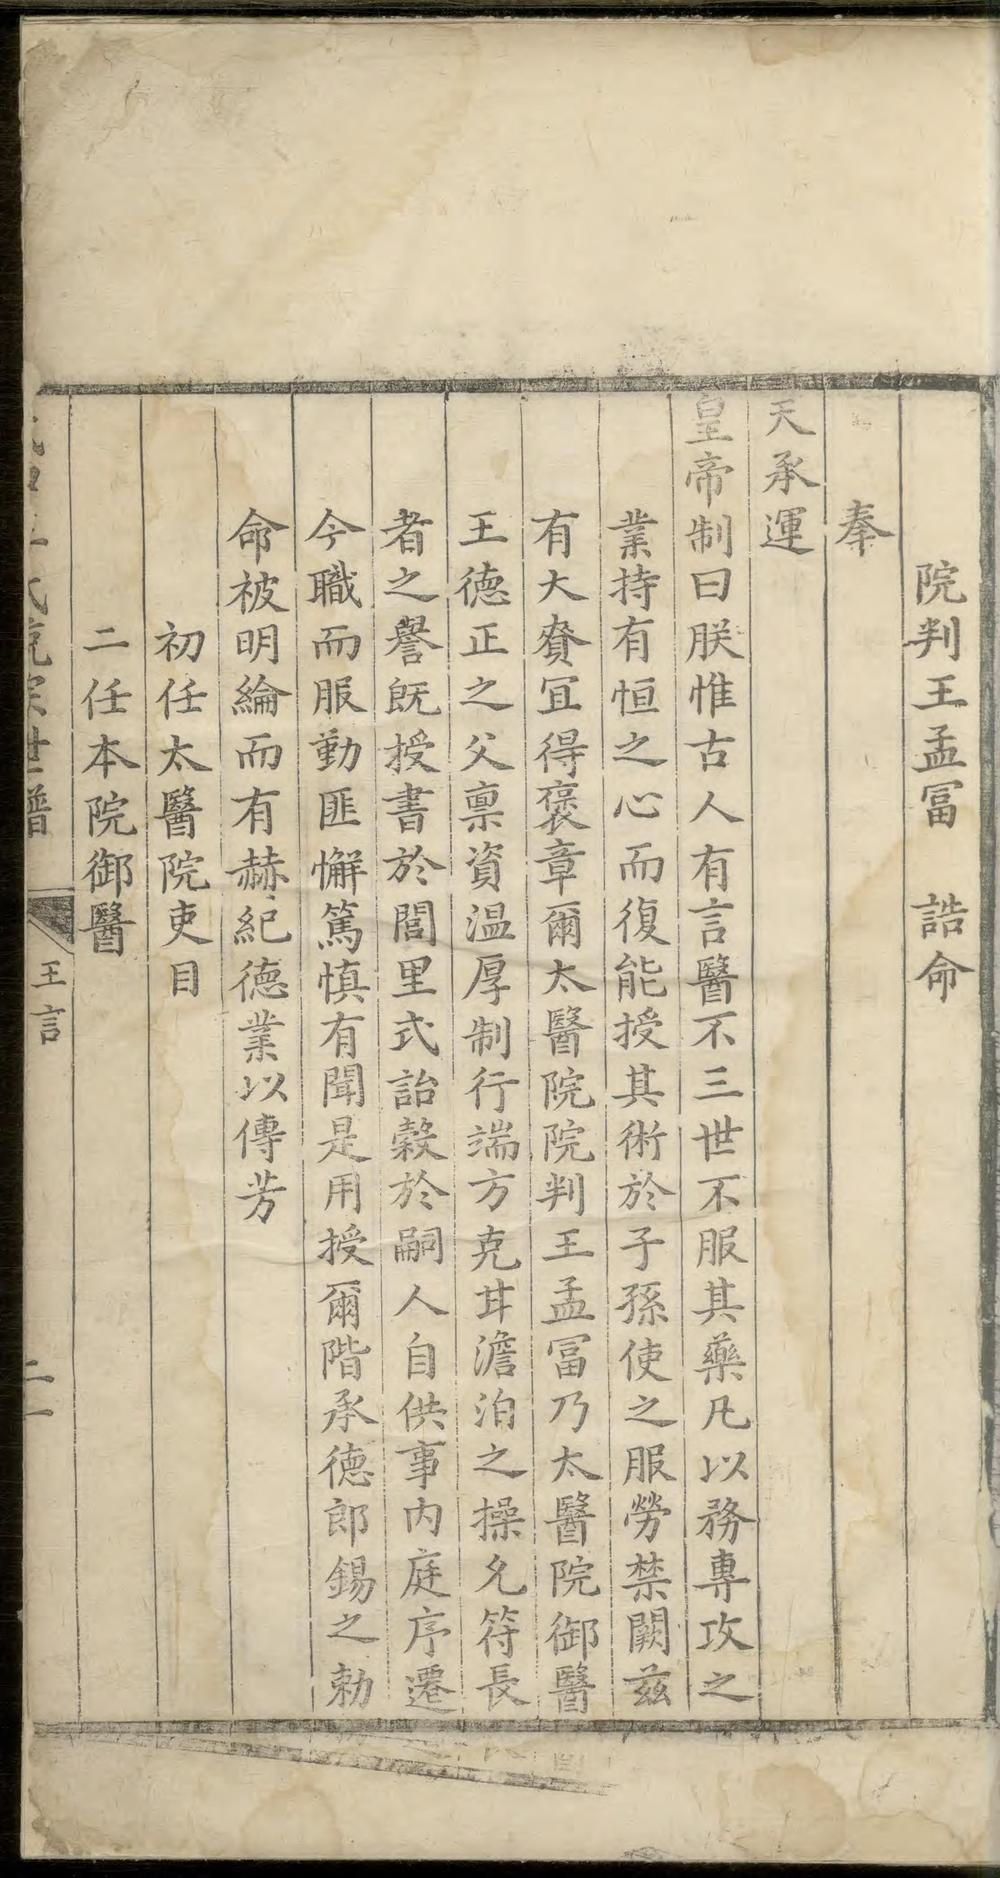 院判王孟冨　誥命
奉
天承運
皇帝制曰朕惟古人有言醫不三世不服其藥凡以務專攻之
業持有恒之心而復能授其術於子孫使之服勞禁闕茲
有大賚宜得褒章爾太醫院院判王孟冨乃太醫院御醫
王德正之父禀資温厚制行端方克甘澹泊之操允符長
者之譽既授書於閭里式詒糓於嗣人自供事内庭序遷
今職而服勤匪懈篤慎有聞是用授爾階承德郎錫之勅
命被明綸而有赫紀德業以傳芳
初任太醫院吏目
二任本院御醫
氏宗世譜
王言